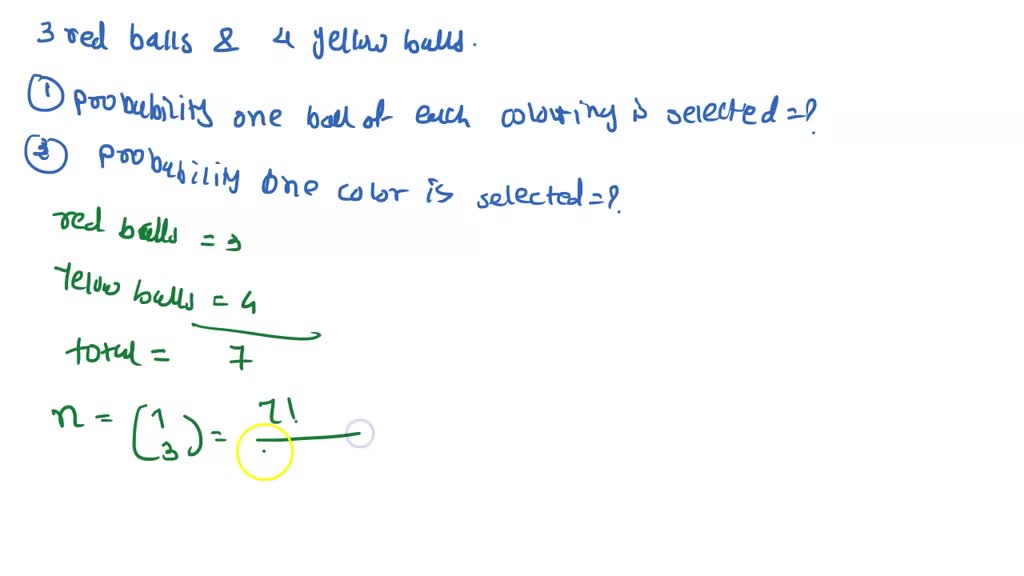 3 red balls & 4 yellow balls.
① probability one ball of each colouring is selected=?
② probability one color is selected=?
red balls = 3
Yelow balls = 4
total = 7
n = (7 3) = 7!